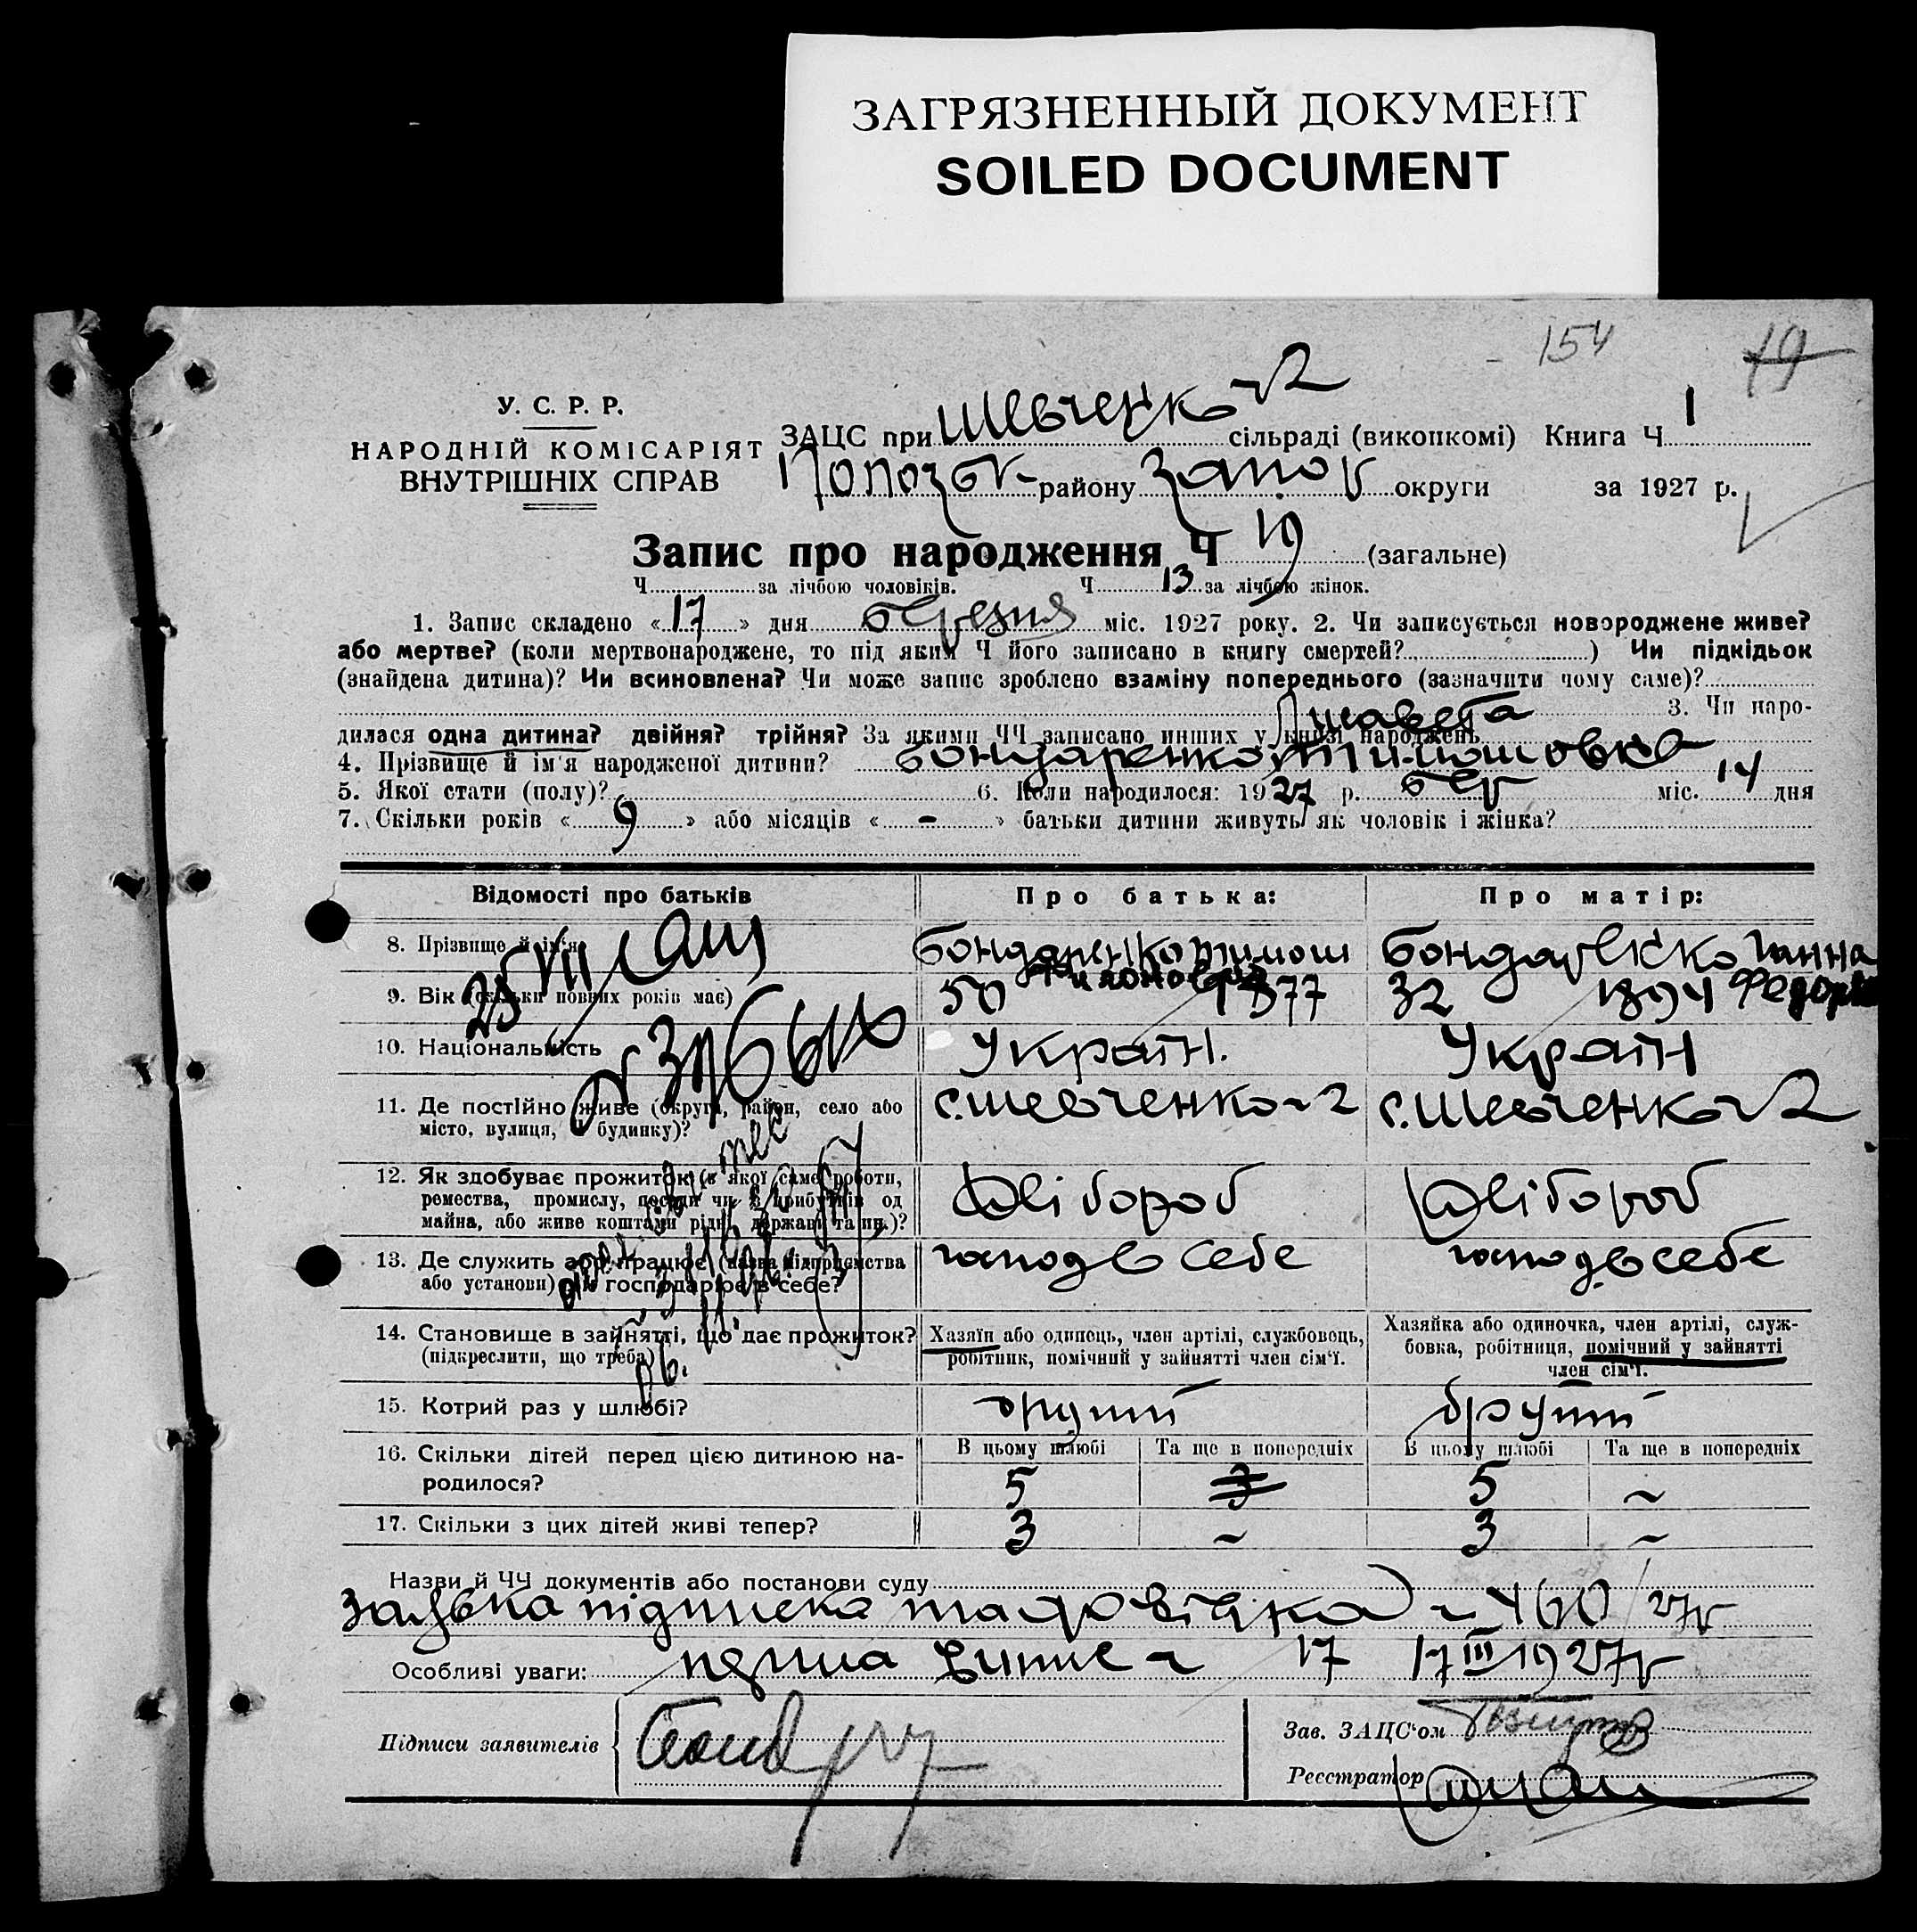 ЗАГРЯЗНЕННЫЙ ДОКУМЕНТ
SOILED DOCUMENT
154 19
У. С. Р. Р.
НАРОДНІЙ КОМІСАРІЯТ
ВНУТРІШНІХ СПРАВ
ЗАЦС при Шевченко №2 сільраді (виконкомі) Книга Ч 1
району Запор округи за 1927 р.
Запис про народження Ч 19 (загальне)
Ч за лічбою чоловіків. Ч 13 за лічбою жінок.
1. Запис складено « 17 » дня березня міс. 1927 року. 2. Чи записується новороджене живе?
або мертве? (коли мертвонароджене, то під яким Ч його записано в книгу смертей? ) Чи підкідьок
(знайдена дитина)? Чи всиновлена? Чи може запис зроблено взаміну попереднього (зазначити чому саме)?
3. Чи наро-
дилася одна дитина? двійня? трійня? За якими ЧЧ записано инших у книзі народжень
Лисавета
4. Прізвище й ім'я народженої дитини? Бондаренко Тимошовна
5. Якої стати (полу)? 6. Коли народилося: 1927 р. бер міс. 14 дня
7. Скільки років « 9 » або місяців « - » батьки дитини живуть як чоловік і жінка?
Відомості про батьків Про батька: Про матір:
8. Прізвище й ім'я Бондаренко Тимош Бондаренко Ганна
9. Вік (скільки повних років має) 50 1877 32 1894
10. Національність Україн. Україн
11. Де постійно живе (округа, район, село або с. Шевченко №2 с. Шевченко №2
місто, вулиця, Ч будинку)?
12. Як здобуває прожиток (з якої саме роботи, хлібороб хлібороб
ремества, промислу, посади чи з прибутків од
майна, або живе коштами рідні, держави та ин.)?
13. Де служить або працює (назва підприємства господ в себе господ в себе
або установи) чи господарює в себе?
14. Становище в зайнятті, що дає прожиток?
(підкреслити, що треба)
Хазяїн або одинець, член артілі, службовець,
робітник, помічний у зайнятті член сім'ї.
Хазяйка або одиночка, член артілі, служ-
бовка, робітниця, помічний у зайнятті
член сім'ї.
15. Котрий раз у шлюбі? другий другий
16. Скільки дітей перед цією дитиною на-
родилося?
В цьому шлюбі Та ще в попередніх В цьому шлюбі Та ще в попередніх
5 3 5 ~
17. Скільки з цих дітей живі тепер? 3 ~ 3 ~
Назви й ЧЧ документів або постанови суду
заявка підписка та довідка
Особливі уваги: 17 17 III 1927р
Підписи заявителів
Зав. ЗАЦС'ом
Реєстратор